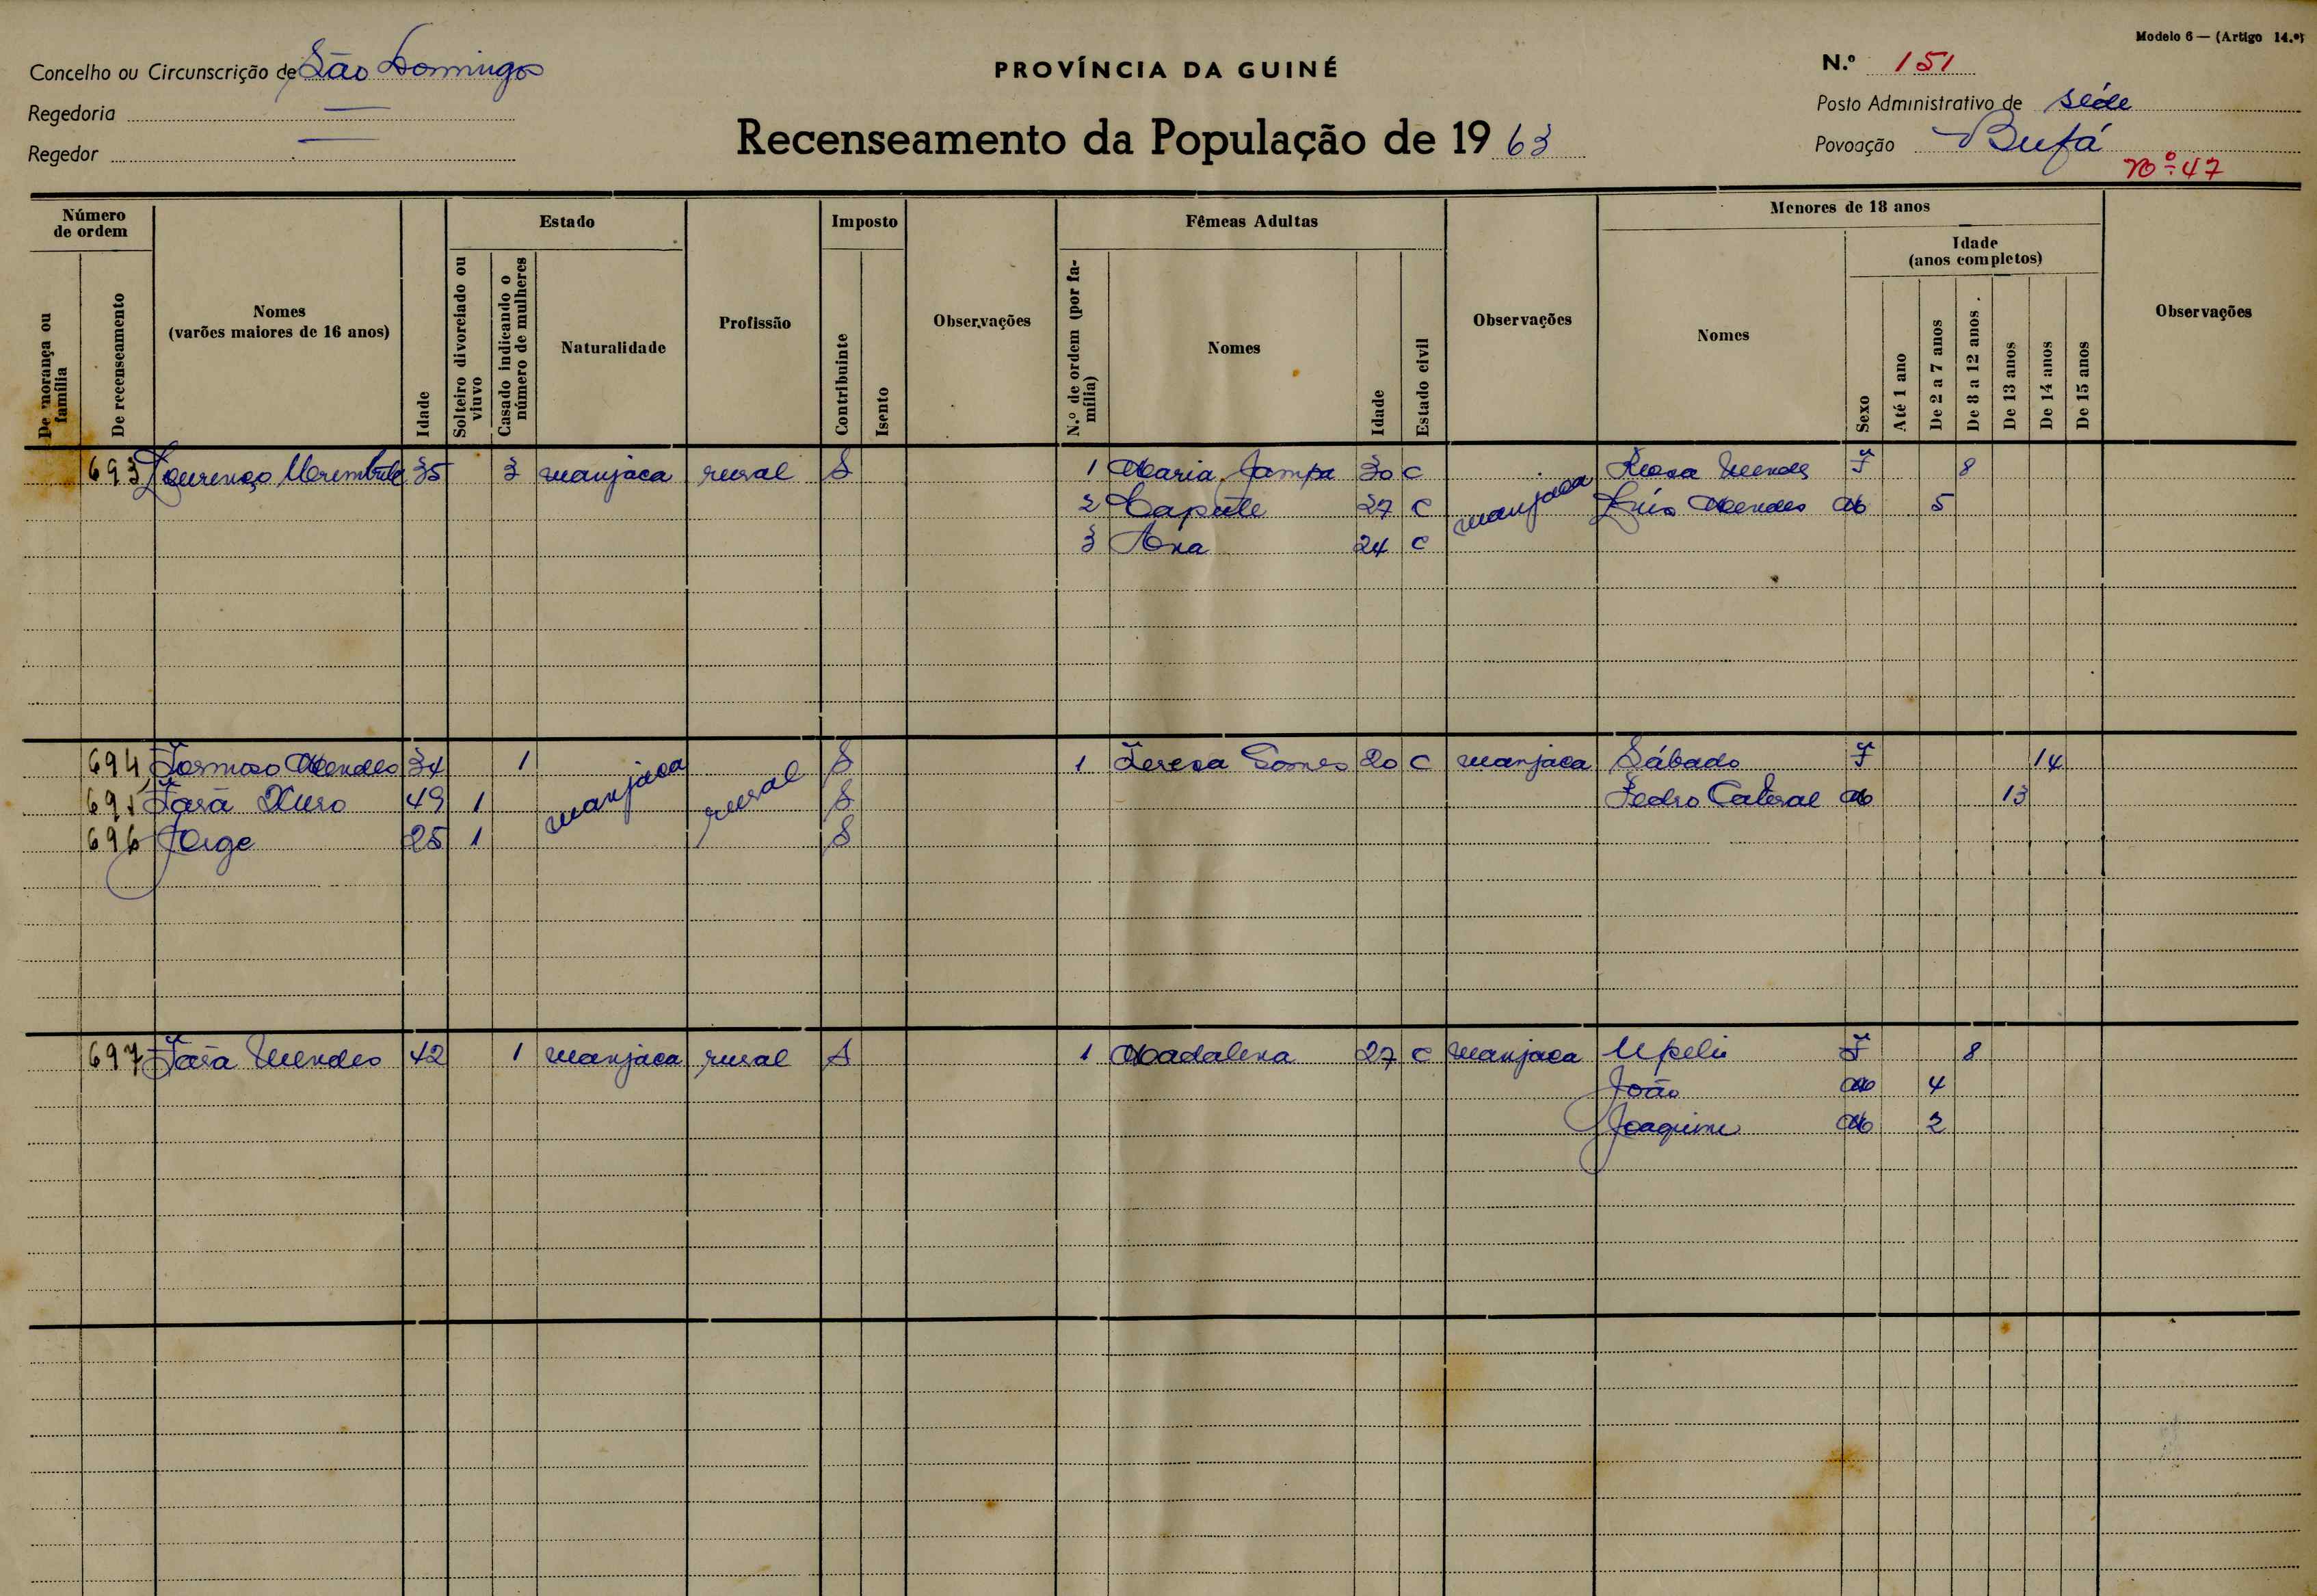 Modelo 6 — (Artigo 14.º)
Concelho ou Circunscrição de São Domingos
PROVÍNCIA DA GUINÉ
N.º 151
Regedoria —
Posto Administrativo de séde
Regedor —
Recenseamento da População de 19 63
Povoação Bufá
Nº 47
Número de ordem
De morança ou família
De recenseamento
Nomes
(varões maiores de 16 anos)
Idade
Estado
Solteiro divorciado ou viuvo
Casado indicando o número de mulheres
Naturalidade
Profissão
Imposto
Contribuinte
Isento
Observações
Fêmeas Adultas
N.º de ordem (por família)
Nomes
Idade
Estado civil
Observações
Menores de 18 anos
Nomes
Sexo
Idade
(anos completos)
Até 1 ano
De 2 a 7 anos
De 8 a 12 anos
De 13 anos
De 14 anos
De 15 anos
Observações
693 Lourenço 35 3 manjaca rural S 1 Maria Jampa 30 C manjaca Rosa Mendes F 8
2 Capute 27 C Luís Mendes M 5
3 Ana 24 C
694 Formoso Mendes 34 1 manjaca rural S 1 Teresa Gomes 20 C manjaca Sábado F 14
695 49 1 S Pedro Cabral M 13
696 Jorge 25 1 S
697 Mendes 42 1 manjaca rural S 1 Madalena 27 C manjaca Upeli F 8
João M 4
Joaquim M 2